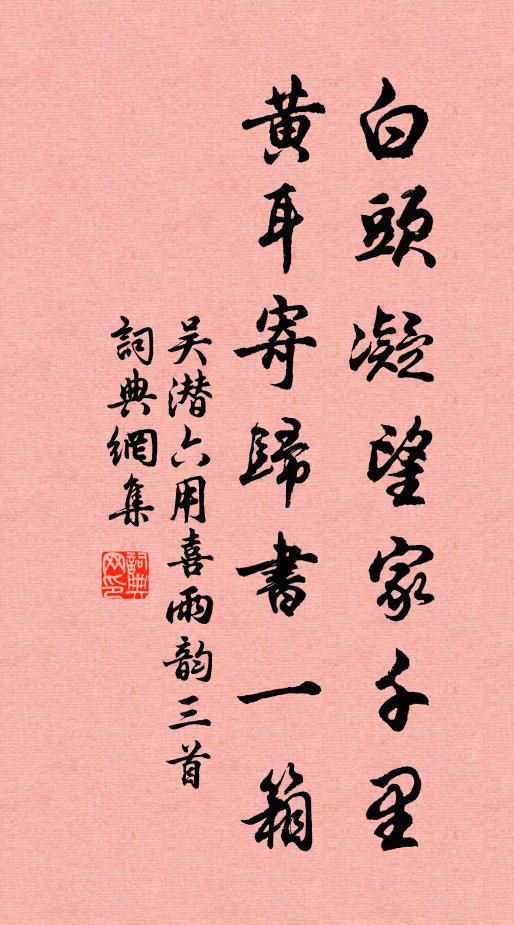 白頭凝望家千里
黃耳寄歸書一箱
吴潜六用喜雨韵三首
詞典網集
詞典網印